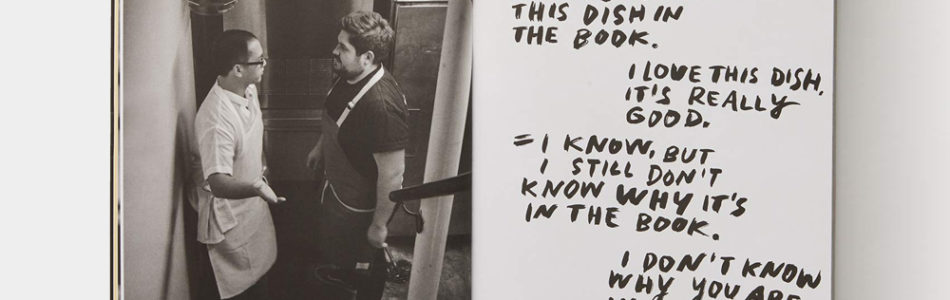 THIS DISH IN
THE BOOK.
I LOVE THIS DISH,
IT'S REALLY
GOOD.
= I KNOW, BUT
I STILL DON'T
KNOW WHY IT'S
IN THE BOOK.
I DON'T KNOW
WHY YOU ARE